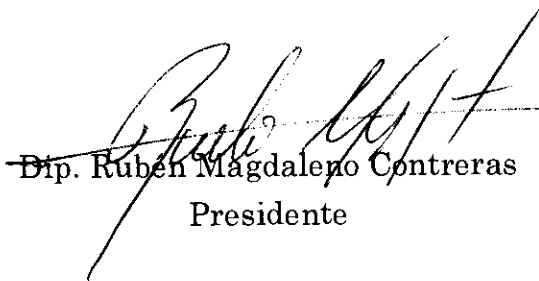 Dip. Rubén Magdaleno Contreras
Presidente